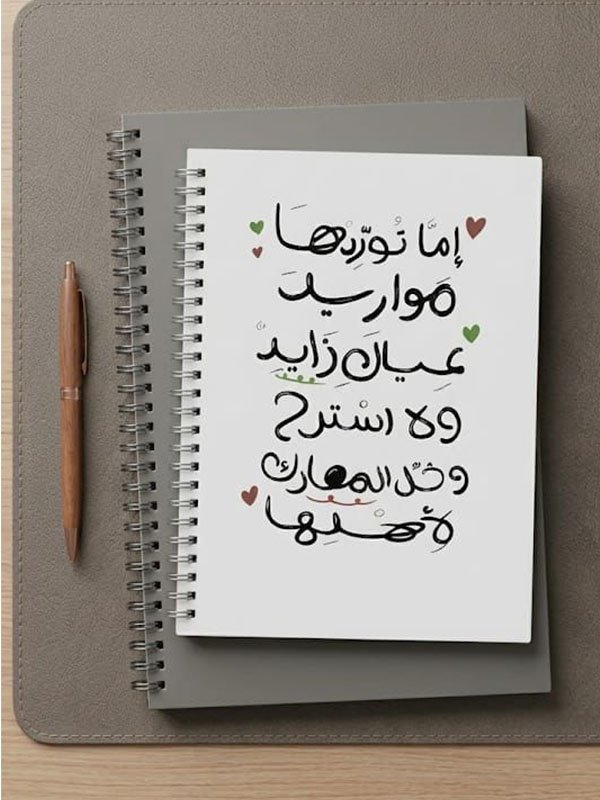 إمَّا تُورِّدْهَا
مَواريدَ
عيالَِ زَايِدٍْ
ولا اسْترح
وخَلِّ المعارك
لأهلِها